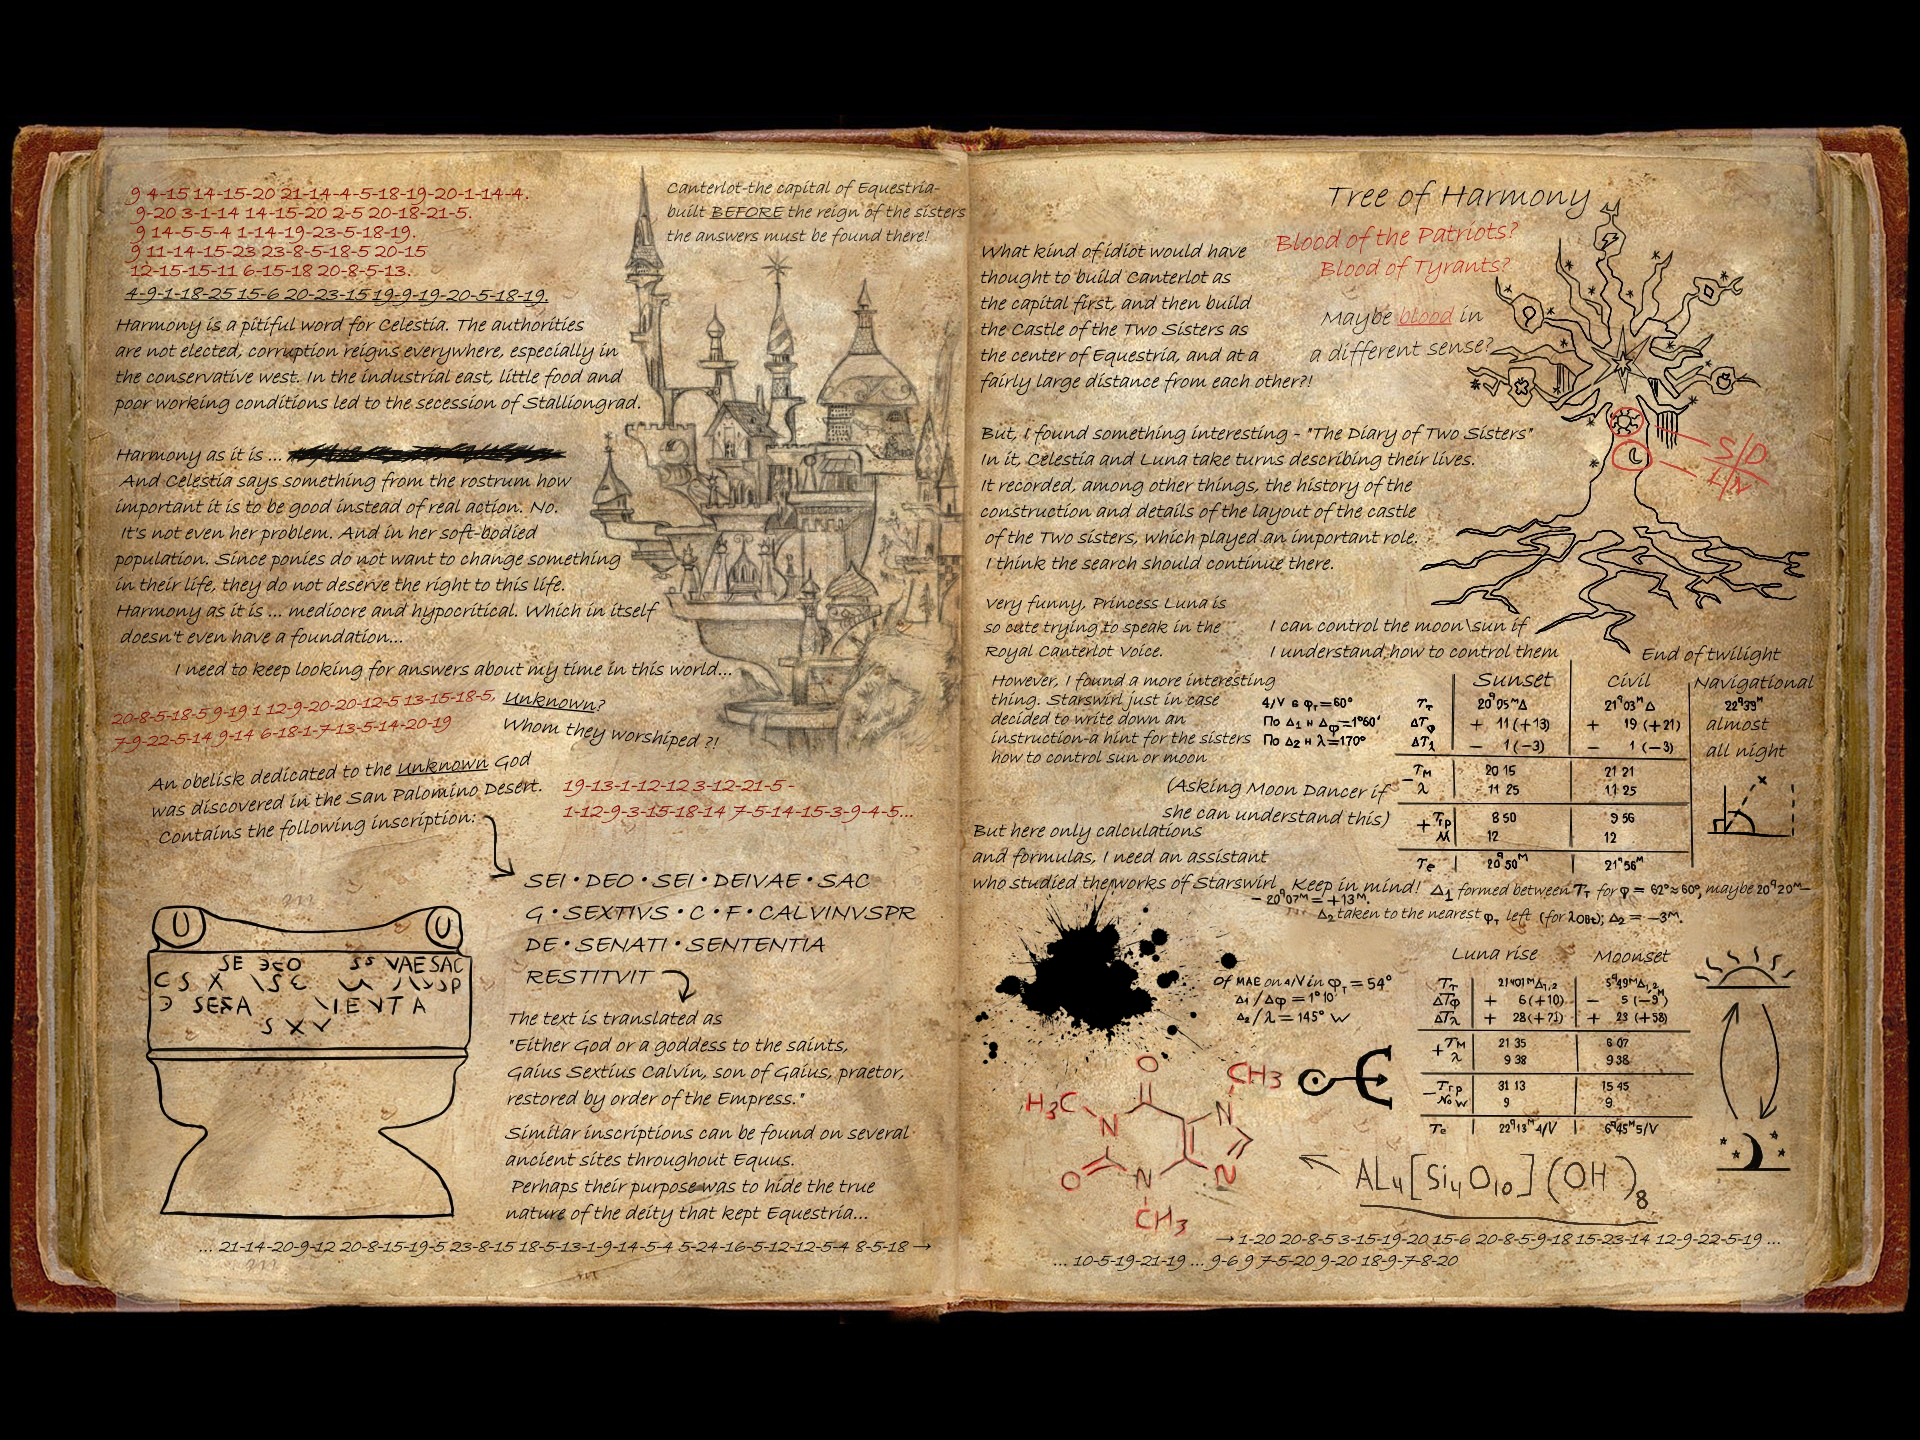 9 4-15 14-15-20 21-14-4-5-18-19-20-1-14-4.
9-20 3-1-14 14-15-20 2-5 20-18-21-5.
9 14-5-5-4 1-14-19-23-5-18-19.
9 11-14-15-23 23-8-5-18-5 20-15
12-15-15-11 6-15-18 20-8-5-13.
4-9-1-18-25 15-6 20-23-15 19-9-19-20-5-18-19.
Harmony is a pitiful word for Celestia. The authorities
are not elected, corruption reigns everywhere, especially in
the conservative west. In the industrial east, little food and
poor working conditions led to the secession of Stalliongrad.
Harmony as it is ...
And Celestia says something from the rostrum how
important it is to be good instead of real action. No.
It's not even her problem. And in her soft-bodied
population. Since ponies do not want to change something
in their life, they do not deserve the right to this life.
Harmony as it is ... mediocre and hypocritical. Which in itself
doesn't even have a foundation...
I need to keep looking for answers about my time in this world...
Canterlot-the capital of Equestria-
built BEFORE the reign of the sisters
the answers must be found there!
20-8-5-18-5 9-19 1 12-9-20-20-12-5 13-15-18-5,
7-9-22-5-14 9-14 6-18-1-7-13-5-14-20-19
Unknown?
Whom they worshiped ?!
An obelisk dedicated to the Unknown God
was discovered in the San Palomino Desert.
Contains the following inscription:
19-13-1-12-12 3-12-21-5 -
1-12-9-3-15-18-14 7-5-14-15-3-9-4-5...
SEI • DEO • SEI • DEIVAE • SAC
G • SEXTIVS • C • F • CALVINVSPR
DE • SENATI • SENTENTIA
RESTITVIT
The text is translated as
"Either God or a goddess to the saints,
Gaius Sextius Calvin, son of Gaius, praetor,
restored by order of the Empress."
Similar inscriptions can be found on several
ancient sites throughout Equus.
Perhaps their purpose was to hide the true
nature of the deity that kept Equestria...
... 21-14-20-9-12 20-8-15-19-5 23-8-15 18-5-13-1-9-14-5-4 5-24-16-5-12-12-5-4 8-5-18 →
Tree of Harmony
Blood of the Patriots?
Blood of Tyrants?
Maybe blood in
a different sense?
S/D
L/N
What kind of idiot would have
thought to build Canterlot as
the capital first, and then build
the Castle of the Two Sisters as
the center of Equestria, and at a
fairly large distance from each other?!
But, I found something interesting - "The Diary of Two Sisters"
In it, Celestia and Luna take turns describing their lives.
It recorded, among other things, the history of the
construction and details of the layout of the castle
of the Two sisters, which played an important role.
I think the search should continue there.
Very funny, Princess Luna is
so cute trying to speak in the
Royal Canterlot Voice.
I can control the moon\sun if
I understand how to control them
However, I found a more interesting
thing. Starswirl just in case
decided to write down an
instruction-a hint for the sisters
how to control sun or moon
(Asking Moon Dancer if
she can understand this)
But here only calculations
and formulas, I need an assistant
who studied the works of Starswirl
4/V в φт=60°
По Δ1 н Δφ=1°60'
По Δ2 н λ=170°
End of twilight
Sunset Civil Navigational
Tт 20ч05мΔ 21ч03мΔ 22ч39м
ΔTφ + 11 (+13) + 19 (+21) almost
ΔTλ - 1 (-3) - 1 (-3) all night
Tм 20 15 21 21
-λ 11 25 11 25
+Tгр 8 50 9 56
M 12 12
Te 20ч50м 21ч56м
Keep in mind! Δ1 formed between Tт for φ = 62°≈60°, maybe 20ч20м-
- 20ч07м = +13м.
Δ2 taken to the nearest φт left (for λ); Δ2 = -3м.
Luna rise Moonset
Of MAE on 4/V in φт = 54°
Δ1/Δφ = 1°10'
Δ2/λ = 145° W
Tт 21ч01мΔ1,2 5ч49мΔ1,2
ΔTφ + 6 (+10) - 5 (-9м)
ΔTλ + 28 (+71) + 23 (+58)
+Tм 21 35 6 07
λ 9 38 9 38
-Tгр 31 13 15 45
No w 9 9
Te 22ч13м 4/V 6ч45м 5/V
O
CH3
H3C
N
N
O
N
N
CH3
AL4[Si4O10](OH)8
→ 1-20 20-8-5 3-15-19-20 15-6 20-8-5-9-18 15-23-14 12-9-22-5-19 ...
... 10-5-19-21-19 ... 9-6 9 7-5-20 9-20 18-9-7-8-20